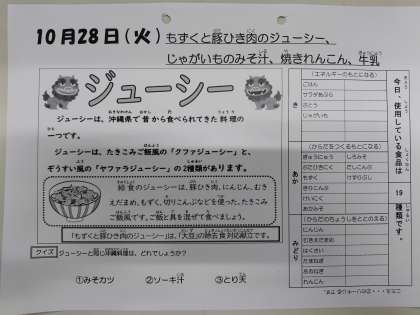 10月28日(火)もずくと豚ひき肉のジューシー、
じゃがいものみそ汁、焼きれんこん、牛乳
ジューシー
ジューシーは、沖縄県で昔から食べられてきた料理の
一つです。
ジューシーは、たきこみご飯風の「クファジューシー」と、
ぞうすい風の「ヤファラジューシー」の2種類があります。
給食のジューシーは、豚ひき肉、にんじん、むき
えだまめ、もずく、切りこんぶなどを使った、たきこみ
ご飯風です。ご飯と具を混ぜて食べましょう。
「もずくと豚ひき肉のジューシー」は、「大豆」の除去食対応献立です。
クイズ
ジューシーと同じ沖縄料理は、どれでしょうか?
①みそカツ ②ソーキ汁 ③とり天
今日、使用している食品は 19 種類です。
き
(エネルギーのもとになる)
ごはん
サラダあぶら
さとう
じゃがいも
あか
(からだをつくるもとになる)
ぎゅうにゅう しろみそ
ぶたひきにく だしこんぶ
もずく けずりぶし
きりこんぶ
けいにく
あかみそ
みどり
(からだのちょうしをととのえる)
にんじん
むきえだまめ
はくさい
たまねぎ
ねぎ
れんこん